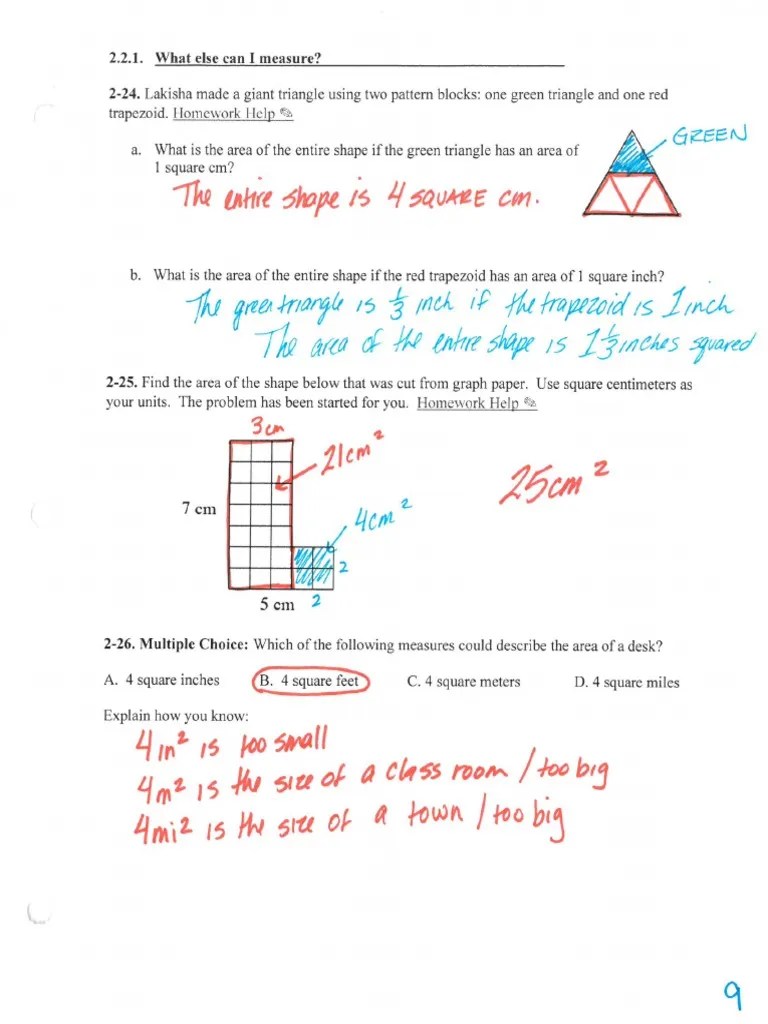 2.2.1. What else can I measure?
2-24. Lakisha made a giant triangle using two pattern blocks: one green triangle and one red
trapezoid. Homework Help ✎
GREEN
a. What is the area of the entire shape if the green triangle has an area of
1 square cm?
The entire shape is 4 SQUARE cm.
b. What is the area of the entire shape if the red trapezoid has an area of 1 square inch?
The green triangle is 1/3 inch if the trapezoid is 1 inch
The area of the entire shape is 1 1/3 inches squared
2-25. Find the area of the shape below that was cut from graph paper. Use square centimeters as
your units. The problem has been started for you. Homework Help ✎
3 cm
21cm²
25cm²
7 cm
4cm²
2
5 cm 2
2-26. Multiple Choice: Which of the following measures could describe the area of a desk?
A. 4 square inches B. 4 square feet C. 4 square meters D. 4 square miles
Explain how you know:
4in² is too small
4m² is the size of a class room / too big
4mi² is the size of a town / too big
9